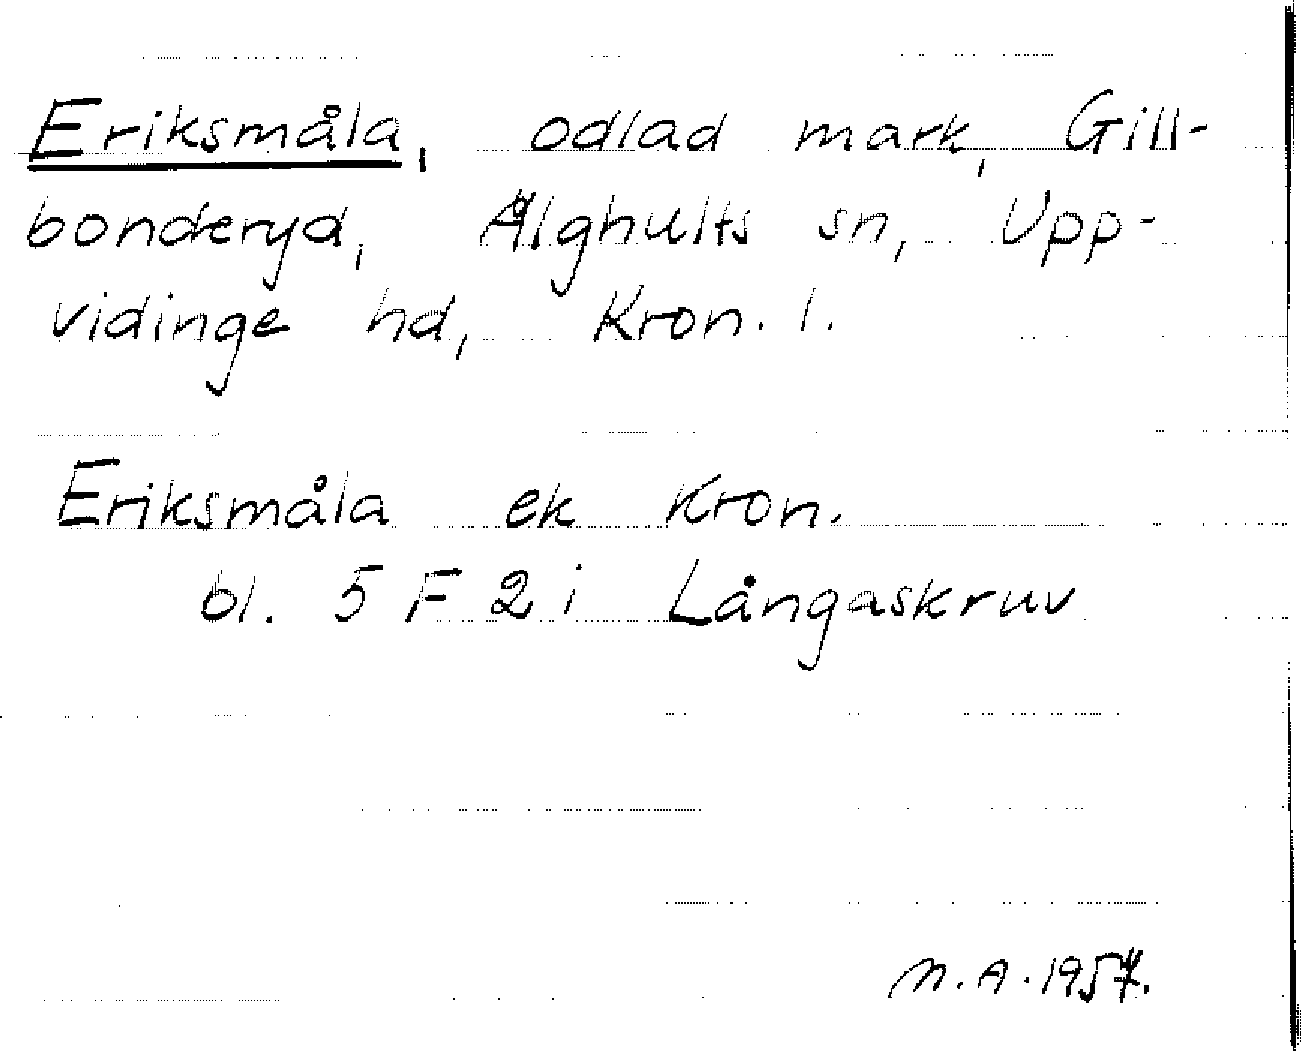 Eriksmåla, odlad mark, Gill-
bonderyd, Älghults sn, Upp-
vidinge hd, Kron. l.
Eriksmåla ek Kron.
bl. 5 F 2 i Långaskruv
N.A. 1957.